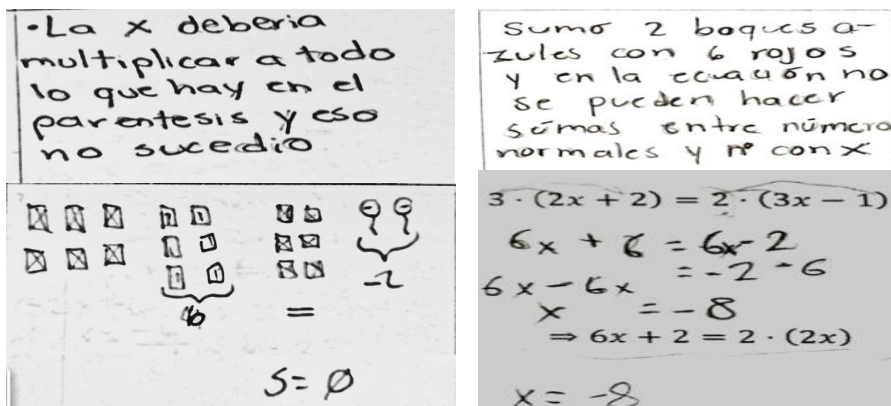 ·La x deberia
multiplicar a todo
lo que hay en el
parentesis y eso
no sucedio
Sumó 2 boques a-
zules con 6 rojos
y en la ecuación no
se pueden hacer
sumas entre número
normales y nº con x
6
=
-2
S= Ø
3 · (2x + 2) = 2 · (3x − 1)
6x + 6 = 6x-2
6x - 6x = -2 -6
x = -8
⇒ 6x + 2 = 2 · (2x)
x = -8